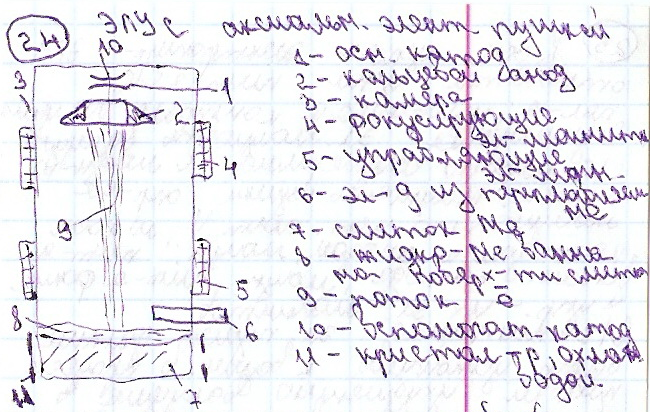 24
ЭПУ с аксиальн. элект пушкой
10
1 - осн. катод
2 - кольцевой анод
3 - камера
4 - фокусирующие
эл-магниты
5 - управляющие
эл-магн.
6 - эл-д из переплавляем
Ме
7 - слиток Ме
8 - жидко-Ме ванна
на поверх-ти слитка
9 - поток ē
10 - вспомагат. катод
11 - кристал-р, охлаж
водой.
3
1
2
4
9
5
8
6
11
7